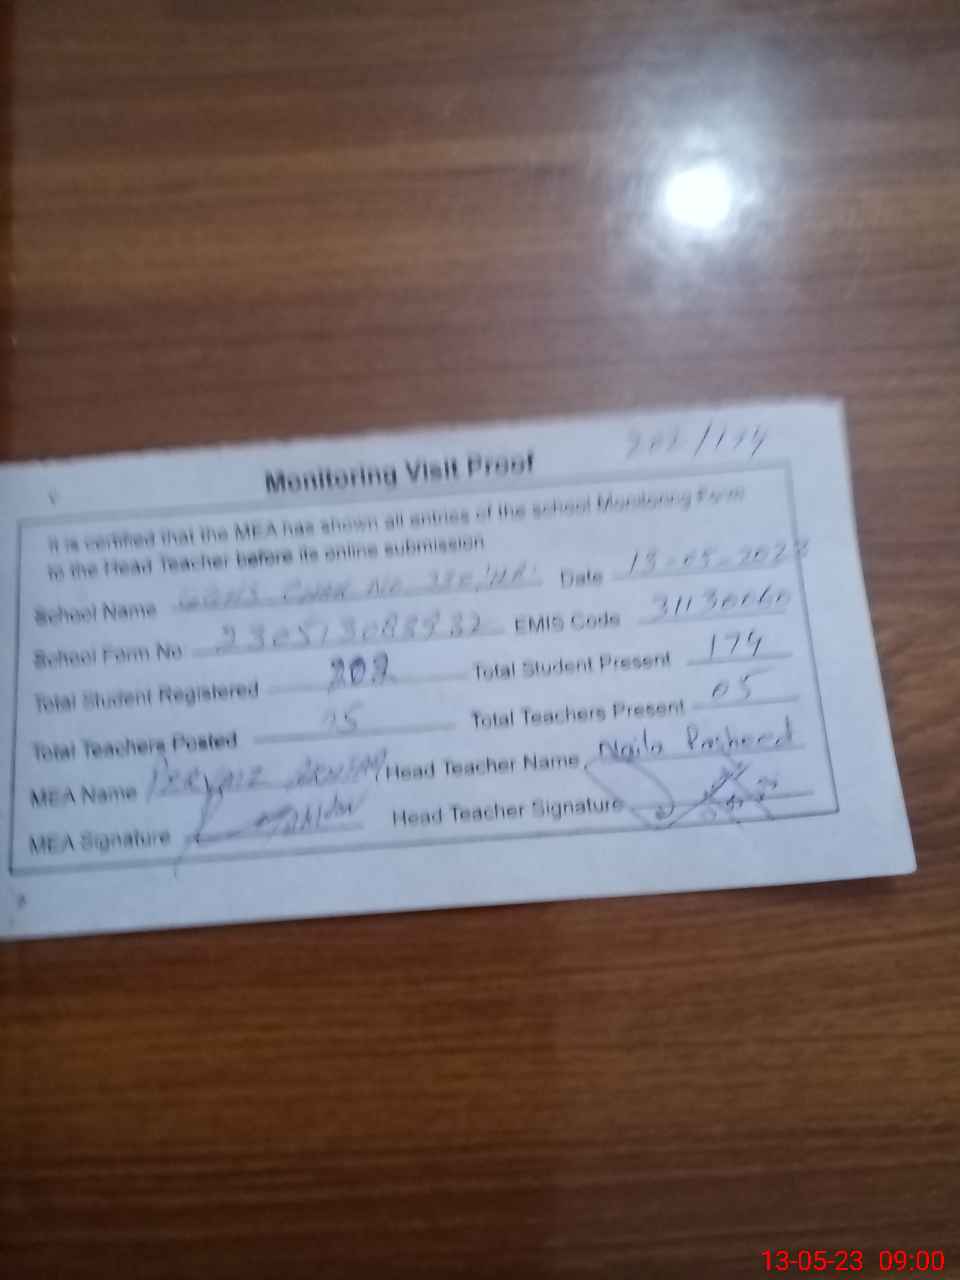 202/174
Monitoring Visit Proof
It is certified that the MEA has shown all entries of the school Monitoring Form
to the Head Teacher before its online submission
School Name Date 13-05-2023
School Form No EMIS Code 31130060
Total Student Registered 202 Total Student Present 174
Total Teachers Posted 05 Total Teachers Present 05
MEA Name Head Teacher Name Naila Rasheed
MEA Signature Head Teacher Signature
13-05-23 09:00